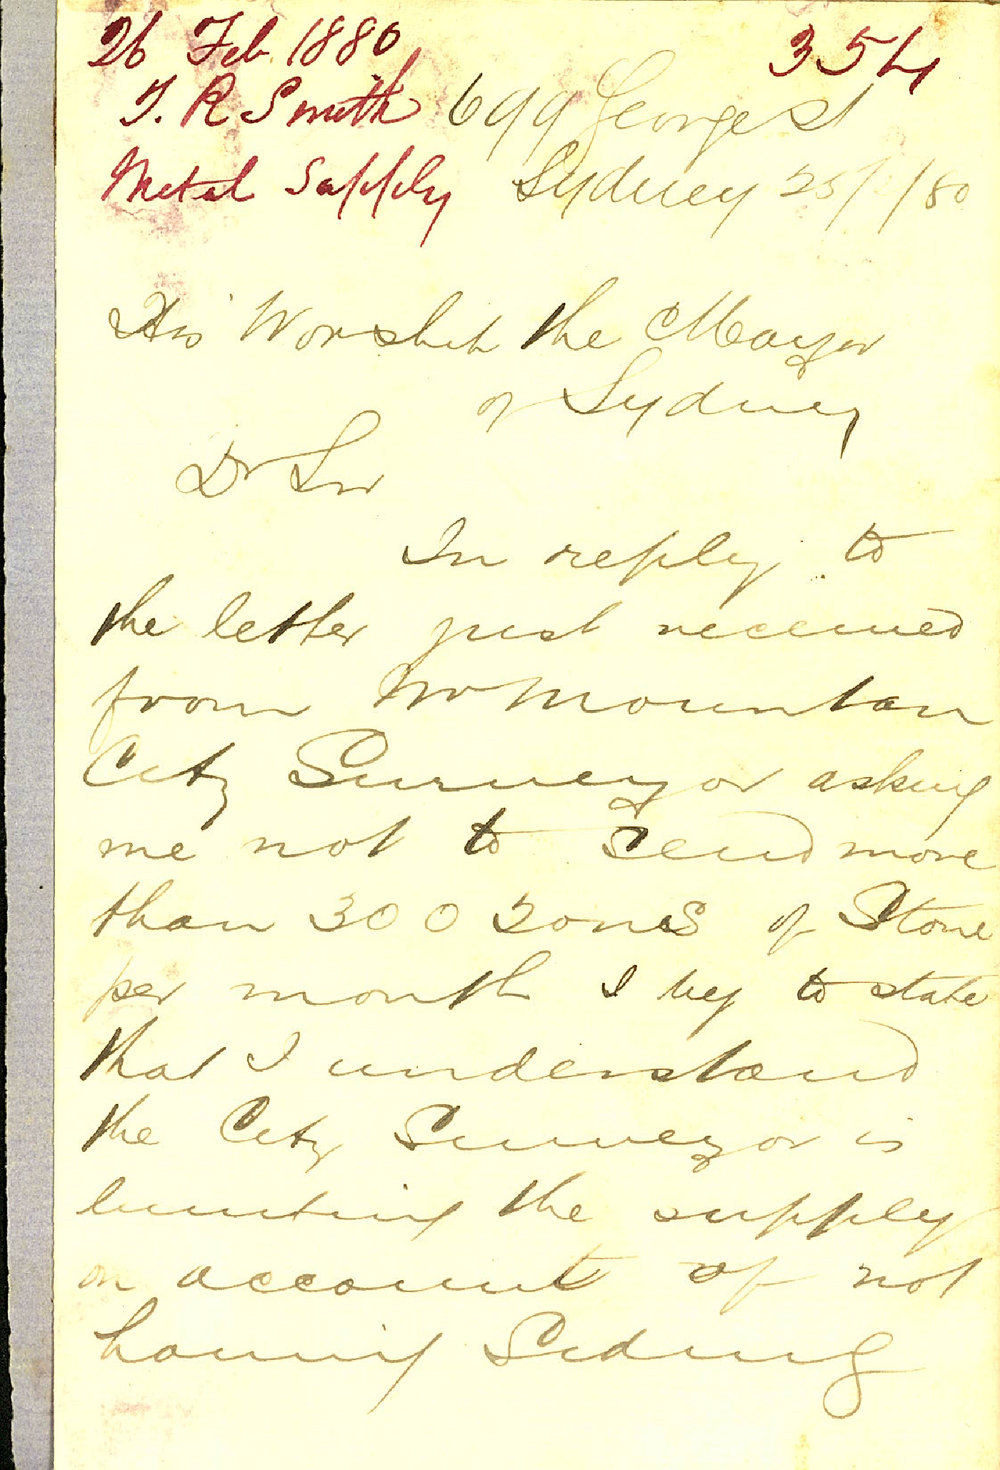 26 Feb 1880
354
T. R Smith
699 George st
Metal Supply
Sydney 25/ /80
His Worship the Mayor
of Sydney
Dr Sir
In reply to
the letter just received
from Mr Mountan
City Surveyor asking
me not to send more
than 300 Tons of Stone
per month I beg to state
that I understand
the City Surveyor is
limiting the supply
on account of not
having Siding